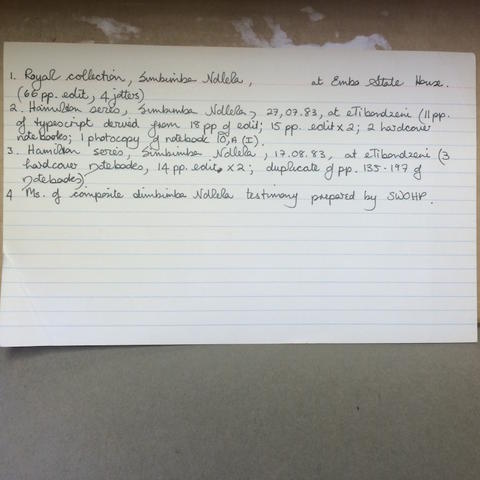 1. Royal collection, Simbimba Ndlela, at Embo State House.
(66 pp. edit, 4 jotters)
2. Hamilton series, Simbimba Ndlela, 27.07.83, at eTibondzeni (11 pp.
of typescript derived from 18 pp of edit; 15 pp. edit x 2; 2 hardcover
notebooks; 1 photocopy of notebook 10, A (I).
3. Hamilton series, Simbimba Ndlela, 17.08.83, at eTibondzeni (3
hardcover notebooks, 14 pp. edit, x 2; duplicate of pp. 135-197 of
notebooks)
4 Ms. of composite Simbimba Ndlela testimony prepared by SWOHP.